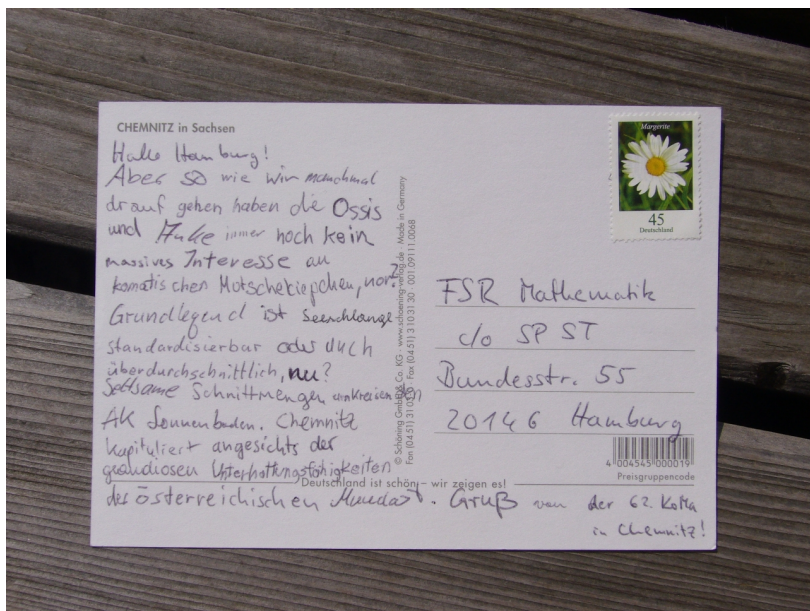 CHEMNITZ in Sachsen
Hallo Hamburg!
Aber so wie wir manchmal
drauf gehen haben die Ossis
und Anke immer noch kein
massives Interesse an
komatischen Motschekiepchen, nor?
Grundlegend ist Seeschlange
standardisierbar oder duch
überdurchschnittlich, nu?
Seltsame Schnittmengen umkreisen den
AK Sonnenbaden. Chemnitz
kapituliert angesichts der
grandiosen Unterhaltungsfähigkeiten
des österreichischen Mundart. Gruß von der 62. KoMa
in Chemnitz!
© Schöning GmbH & Co. KG · www.schoening-verlag.de · Made in Germany
Fon (0451) 31 03 · Fax (0451) 3 10 31 30 · 001.09111.0068
Deutschland ist schön – wir zeigen es!
Margerite
45
Deutschland
FSR Mathematik
c/o SPST
Bundesstr. 55
20146 Hamburg
4 004545 000019
Preisgruppencode